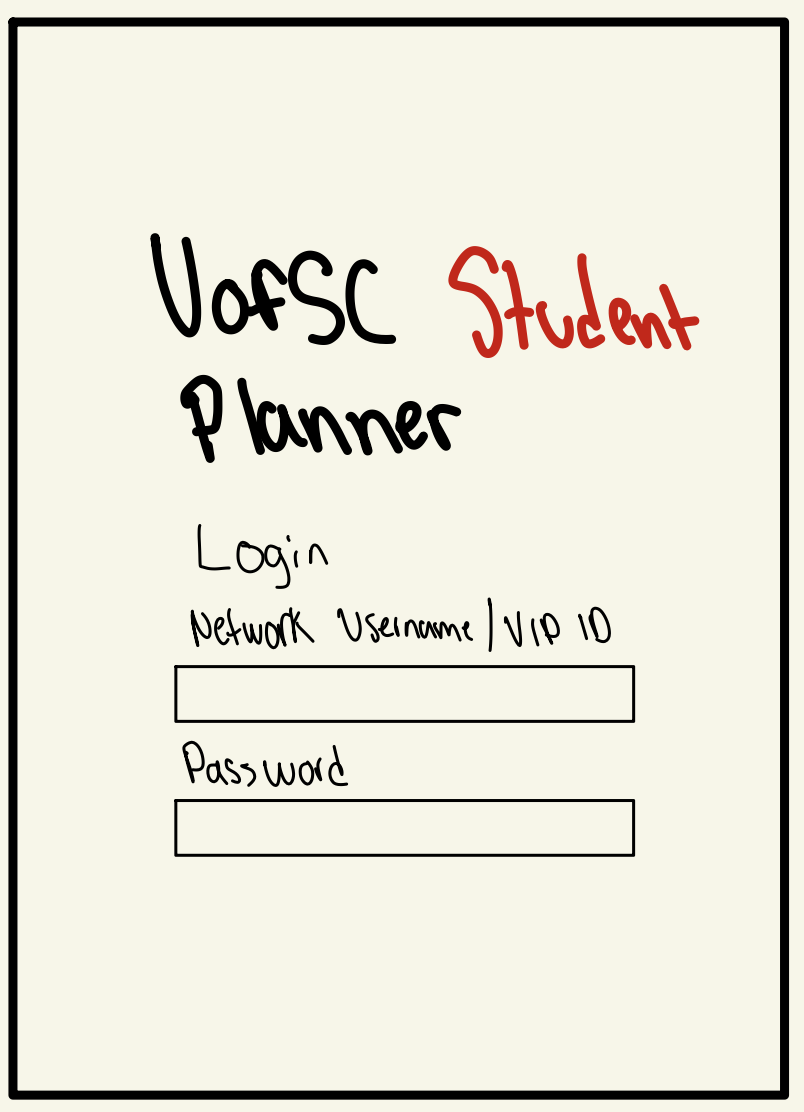 UofSC Student
Planner
Login
Network Username | VIP ID
Password